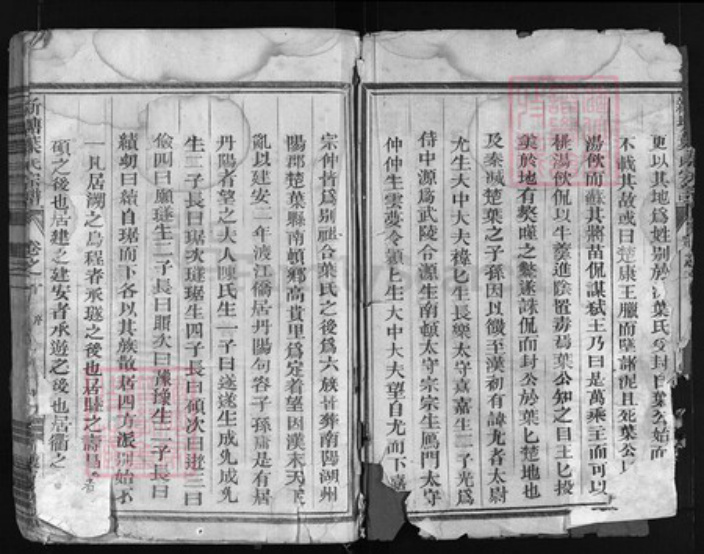 更以其地爲姓别於
葉氏受封自葉公始而
不載其故或曰楚康王臘而墜諸泥且死葉公以
湯飲而蘇其將苗侃謀弑王乃曰是萬乘主而可以
桃湯飲侃以牛羹進陰置毒焉葉公知之目王匕投
羹於地有獒噬之斃遂誅侃而封公於葉匕楚地也
及秦滅楚葉之子孫因以顯至漢初有諱尤者太尉
尤生大中大夫 匕生長樂太守真嘉生二子光爲
侍中源爲武陵令源生南頓太守宗宗生鴈門太守
仲仲生雲夢令顏匕生大中大夫望自尤而下
宗仲皆爲别 合葉氏之後爲六族皆葬南陽湖州
陽郡楚葉縣南頓鄉高貴里爲定着望因漢末天
亂以建安二年渡江僑居丹陽句容子孫 是有居
丹陽者望之夫人陳氏生一子曰遂遂生成先成先
生二子長曰琚次璲琚生四子長曰碩次曰遊三曰
儉四曰願璲生二子長曰頭次曰豫豫生二子長曰
續 曰績自琚而下各以其族散居四方派别始
一凡居湖之烏程者承璲之後也居睦之壽昌 者
碩之後也居建之建安者承遊之後也居衢之
新 葉氏宗譜
卷之 首 序